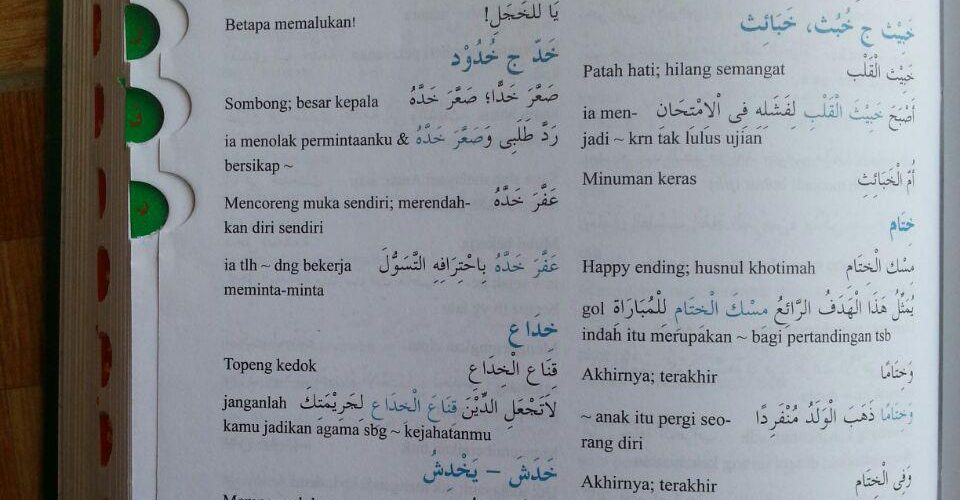 خَبِيْث ج خُبُث، خَبَائِث
خَبِيْث الْقَلْب Patah hati; hilang semangat
أَصْبَحَ خَبِيْثَ الْقَلْبِ لِفَشَلِهِ فِى الْاِمْتِحَان ia men-
jadi ~ krn tak lulus ujian
أُمّ الْخَبَائِث Minuman keras
خِتَام
مِسْك الْخِتَام Happy ending; husnul khotimah
يُمَثِّلُ هَذَا الْهَدَفُ الرَّائِعُ مِسْكَ الْخِتَامِ لِلْمُبَارَاة gol
indah itu merupakan ~ bagi pertandingan tsb
وَخِتَامًا Akhirnya; terakhir
وَخِتَامًا ذَهَبَ الْوَلَدُ مُنْفَرِدًا ~ anak itu pergi seo-
rang diri
وَفِى الْخِتَام Akhirnya; terakhir
يَا لَلْخَجَلِ! Betapa memalukan!
خَدّ ج خُدُوْد
صَعَّرَ خَدًّا؛ صَعَّرَ خَدَّهُ Sombong; besar kepala
رَدَّ طَلَبِى وَصَعَّرَ خَدَّهُ ia menolak permintaanku &
bersikap ~
عَفَّرَ خَدَّهُ Mencoreng muka sendiri; merendah-
kan diri sendiri
عَفَّرَ خَدَّهُ بِاحْتِرَافِهِ التَّسَوُّلَ ia tlh ~ dng bekerja
meminta-minta
خِدَاع
قِنَاع الْخِدَاعِ Topeng kedok
لاَتَجْعَلِ الدِّيْنَ قِنَاعَ الْخِدَاعِ لِجَرِيْمَتِكَ janganlah
kamu jadikan agama sbg ~ kejahatanmu
خَدَشَ – يَخْدِشُ